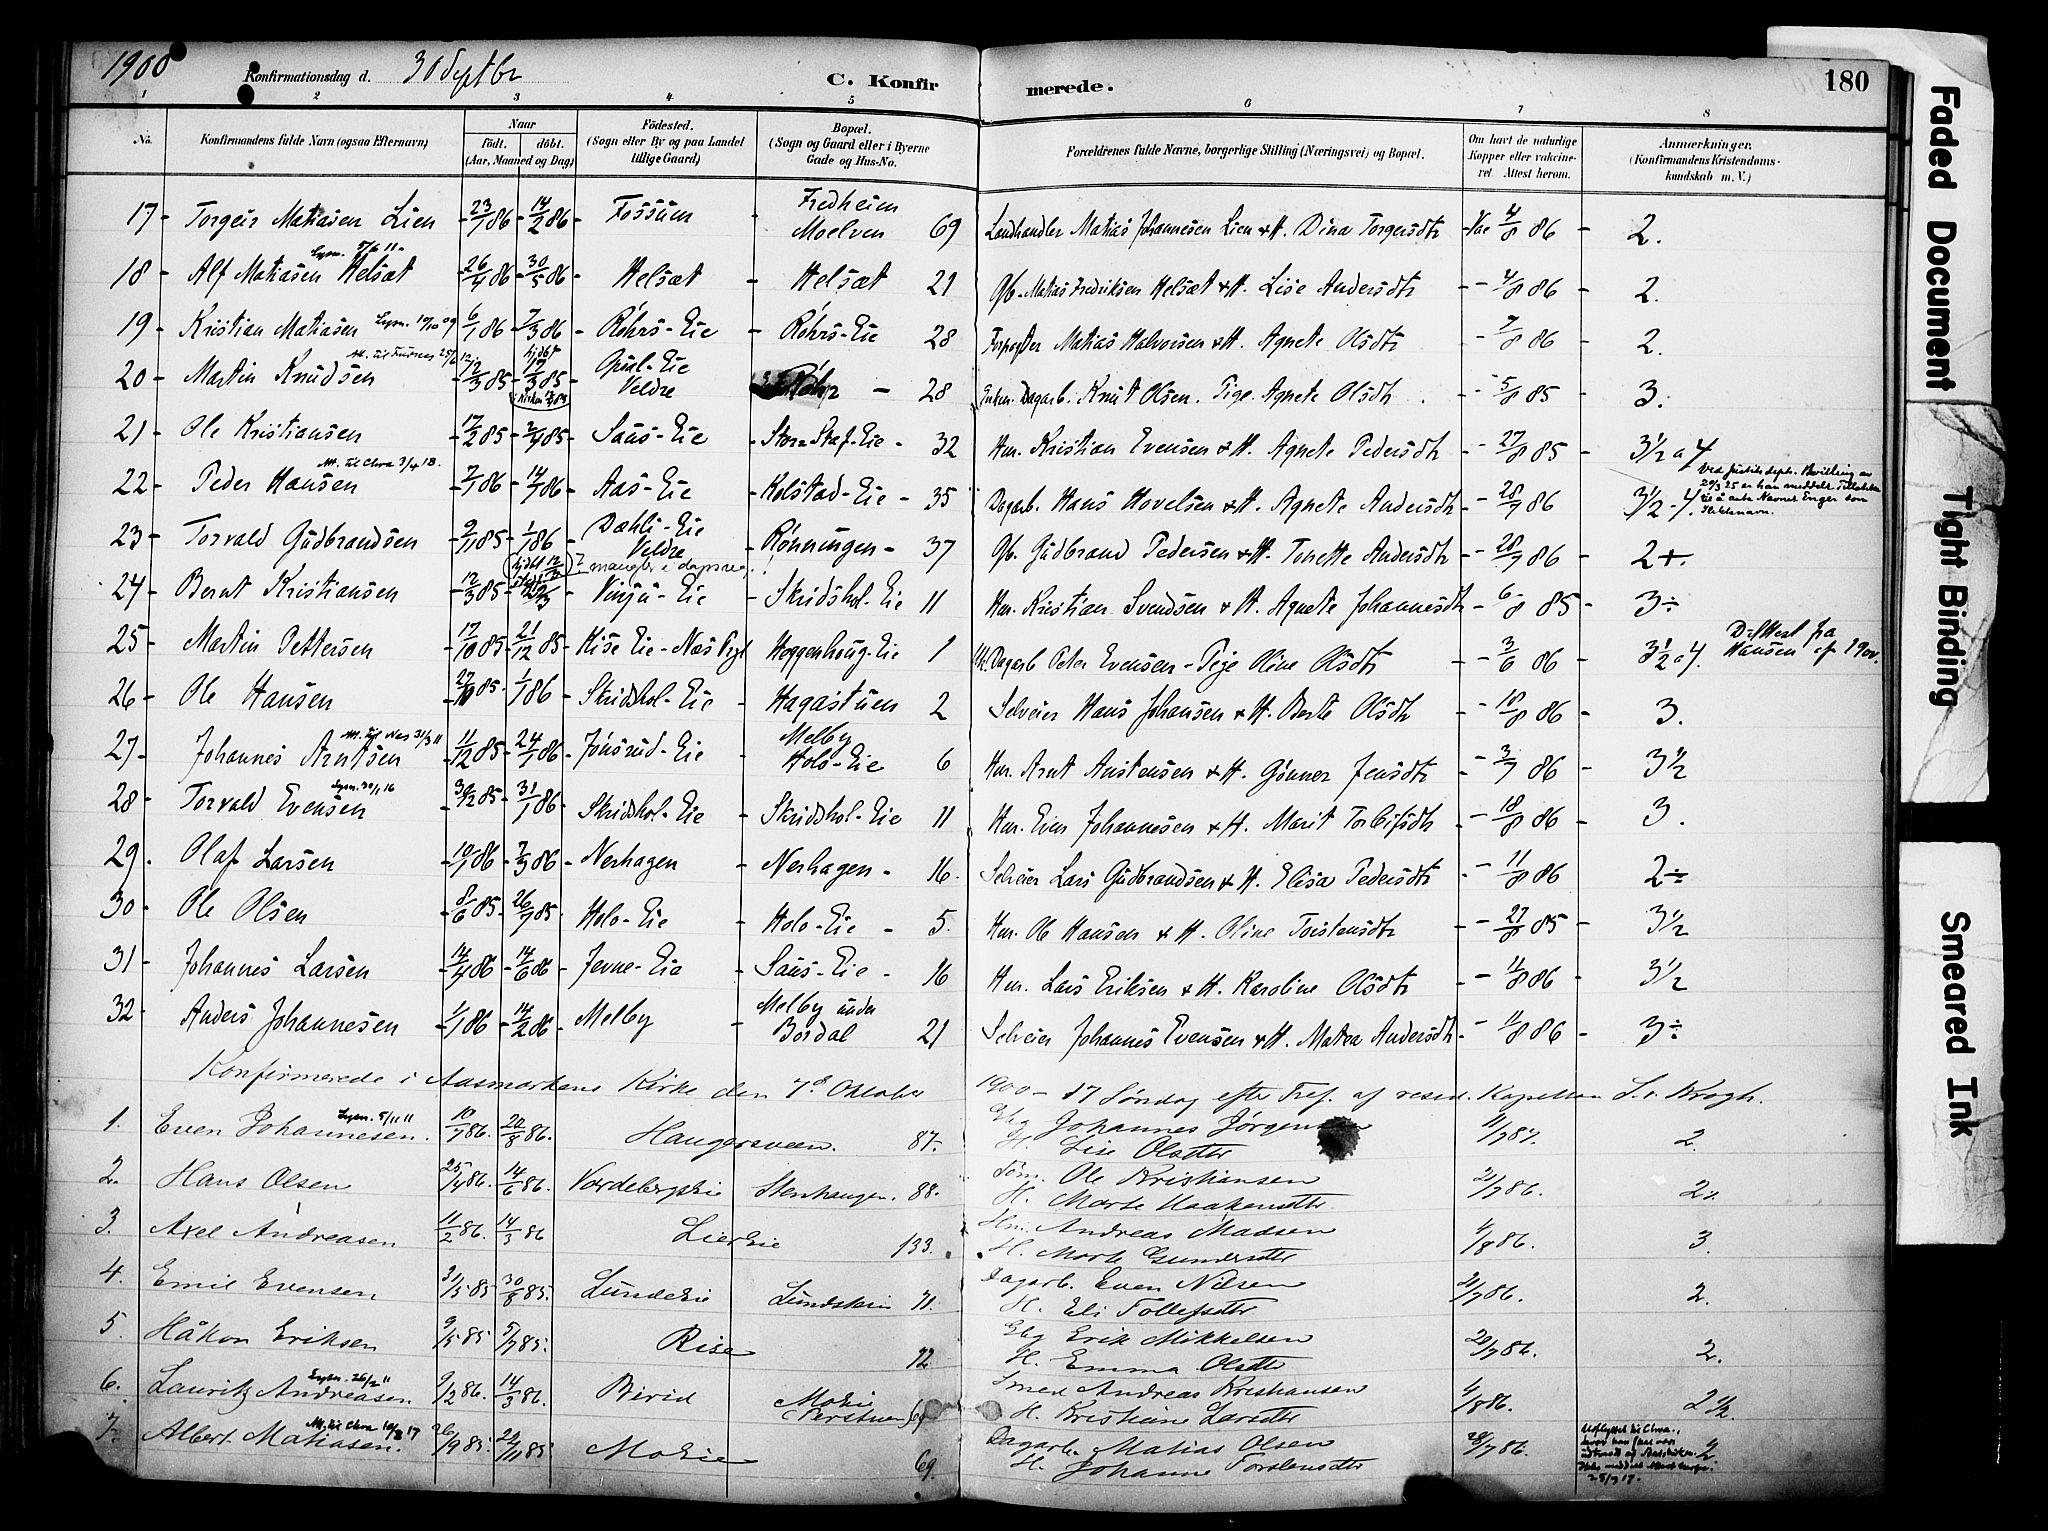 1900 Konfirmationsdag d. 30 Septbr C. Konfirmerede. 180
1 2 3 4 5 6 7 8
No. Konfirmandens fulde Navn (ogsaa Efternavn) Naar født. døbt. (Aar, Maaned og Dag) Fødested. (Sogn eller By og paa Landet tillige Gaard) Bopæl. (Sogn og Gaard eller i Byerne Gade og Hus-No. Forældrenes fulde Navne, borgerlige Stilling (Næringsvei) og Bopæl. Om havt de naturlige Kopper eller vakcineret. Attest herom. Anmærkninger. (Konfirmandens Kristendomskundskab m. V.)
17 - Torgeir Matiasen Lien - 23/1 86 - 14/2 86 - Fossum - Fredheim Moelven 69 Landhandler Matias Johannesen Lien & H. Dina Torgersdtr - Vac 4/8 86 - 2.
18 - Alf Matiasen Helsæt - 26/4 86 - 30/5 86 - Helsæt - Helsæt 21 Gb. Matias Fredriksen Helsæt & H. Lise Andersdtr - 4/8 86 - 2.
19 - Kristian Matiasen 6/1 86 - 7/3 86 - Røhrs-Eie - Røhrs-Eie 28 Forpagter Matias Halvorsen & H. Agnete Olsdtr - 7/8 86 - 2.
20 - Martin Knudsen - 12/3 85 - 17/3 85 - Eie Veldre - 28 Dagarb. Knut Olsen. Pige Agnete Olsdtr - 5/8 85 - 3.
21 - Ole Kristiansen - 17/2 85 - 2/4 85 - Saus-Eie - Store Staf-Eie - 32 Hm. Kristian Evensen & H. Agnete Pedersdtr - 27/8 85 - 3½ a 4
22 - Peder Hansen - 7/1 86 - 14/1 86 - Aas-Eie - Kolstad-Eie - 35 Dagarb. Hans Hovelsen & H. Agnete Andersdtr - 28/7 86 - 3½ - 4.
23 - Torvald Gudbrandsen - 9/11 85 - 1/1 86 - Dæhli-Eie Veldre - Rønningen - 37 Gb. Gudbrand Pedersen & H. Tonette Andersdtr - 28/7 86 - 2+.
24 - Bernt Kristiansen - 12/3 85 - Vinju-Eie - Skridshol-Eie 11 Hm. Kristian Svendsen & H. Agnete Johannesdtr - 6/8 85 - 3÷
25 - Martin Pettersen - 17/10 85 - 21/12 85 - Kise Eie - Næs Pgt - Heggenhoug-Eie 1 Dagarb Peter Evensen - Pige Oline Olsdtr - 3/6 86 - 3½ a 4.
26 - Ole Hansen - 27/10 85 - 1/1 86 - Skridshol-Eie - Hagastuen 2 Selveier Hans Johansen & H. Berte Olsdtr - 18/8 86 - 3.
27 - Johannes Arntsen - 11/12 85 - 24/1 86 - Jønsrud-Eie - Melby Holo-Eie 6 Hm. Arnt Anstensen & H. Gunner Jensdtr - 3/7 86 - 3½
28 - Torvald Evensen - 30/12 85 - 31/1 86 - Skridshol-Eie - Skridshol-Eie 11 Hm. Even Johannesen & H. Marit - 18/8 86 - 3.
29. Olaf Larsen - 10/1 86 - 7/3 86 - Nerhagen - Nerhagen - 16. Selveier Lars Gudbrandsen & H. Elisa Pedersdtr - 11/8 86 2÷
30 - Ole Olsen - 8/6 85 - 26/7 85 - Holo-Eie - Holo-Eie - 5. Hm. Ole Hansen & H. Oline Torstensdtr - 27/8 85 - 3½
31 - Johannes Larsen - 14/4 86 - 14/6 86 - Jevne-Eie - Saus-Eie - 16 Hm. Lars Eriksen & H. Karoline Olsdtr - 11/8 86 - 3½
32 - Anders Johannesen - 1/1 86 - 14/2 86 - Melby - Melby under Bordal 21 Selveier Johannes Evensen & H. Matea Andersdtr - 11/8 86 - 3÷
Konfirmerede i Aasmarkens Kirke den 7de Oktober 1900 - 17 Søndag efter Tref. af resid. Kapellan S. v. Krogh.
1. Even Johannesen. 10/7 86. 20/8 86. Haugersveen. 87. Gbg Johannes Jørgensen H. Lise Olsdtr 11/7 87. 2.
2. Hans Olsen 25/4 86. 14/6 86. Vardebergseie Stenhaugen. 88. Ole Kristiansen H. Marte Haakensdtr 21/7 86. 2
3. Axel Andreasen 11/2 86. 14/3 86 Liereie 133. Hm. Andreas Madsen H. Marte Gundersdtr 4/8 86. 3.
4. Emil Evensen 31/5 85 30/8 85. Lundeie 71. Dagarb. Even Nilsen H. Eli Tollefsdtr 21/7 86. 2.
5. Håkon Eriksen 9/5 85 5/7 85. Rise 72 Gbg Erik Mikkelsen H. Emma Olsdtr 20/7 86. 2.
6. Lauritz Andreasen 9/2 86. 14/3 86. Birid Smed Andreas Kristiansen H. Kristiane Larsdtr 4/8 86. 2½
7. Albert Matiasen. 26/9 85. 22/11 85 Moeie 69. Dagarb. Matias Olsen H. Johanne Torstensdtr 28/7 86. 2.
Faded Document
Tight Binding
Smeared Ink